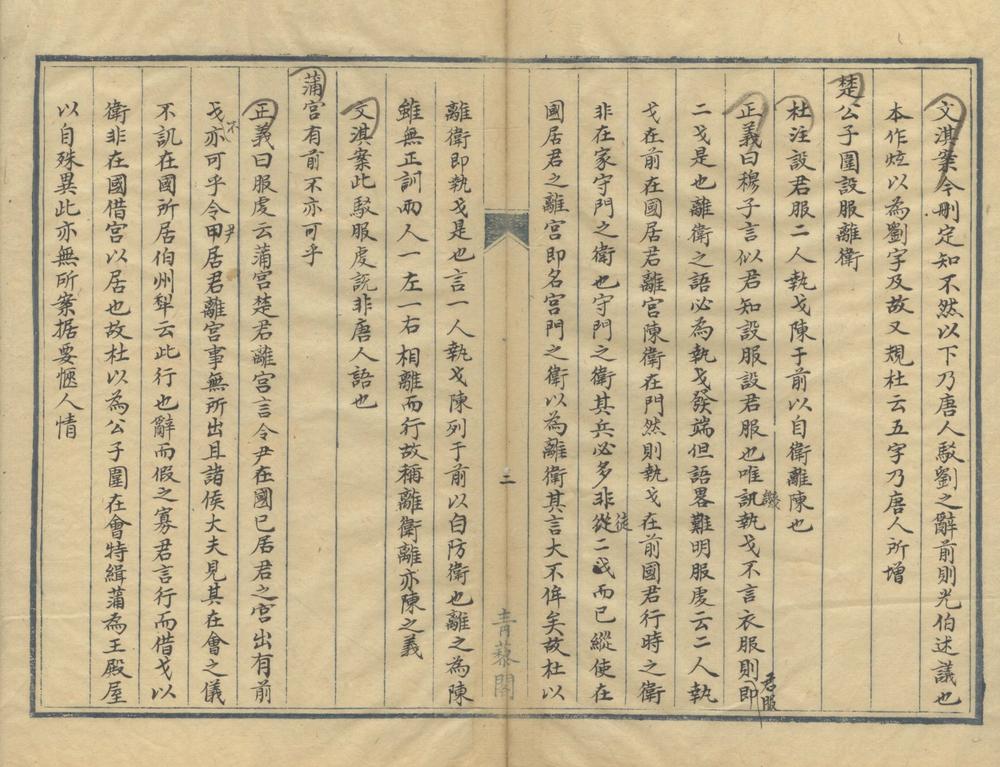 文淇案今刪定知不然以下乃唐人駁劉之辭前則光伯述議也
本作炫以為劉字及故又規杜云五字乃唐人所增
楚公子圍設服離衛
杜注設君服二人執戈陳于前以自衛離陳也
正義曰穆子言似君知設服設君服也唯譏執戈不言衣服則君服即
二戈是也離衛之語必為執戈發端但語畧難明服虔云二人執
戈在前在國居君離宮陳衛在門然則執戈在前國君行時之衛
非在家守門之衛也守門之衛其兵必多非徒二戈而已縱使在
國居君之離宮即名宮門之衛以為離衛其言大不侔矣故杜以
離衛即執戈是也言一人執戈陳列于前以自防衛也離之為陳
雖無正訓兩人一左一右相離而行故稱離衛離亦陳之義
文淇案此駁服虔說非唐人語也
蒲宮有前不亦可乎
正義曰服虔云蒲宮楚君離宮言令尹在國已居君之宮出有前
戈不亦可乎令尹居君離宮事無所出且諸侯大夫見其在會之儀
不譏在國所居伯州犁云此行也辭而假之寡君言行而借戈以
衛非在國借宮以居也故杜以為公子圍在會特緝蒲為王殿屋
以自殊異此亦無所案據要愜人情
二
青藜閣